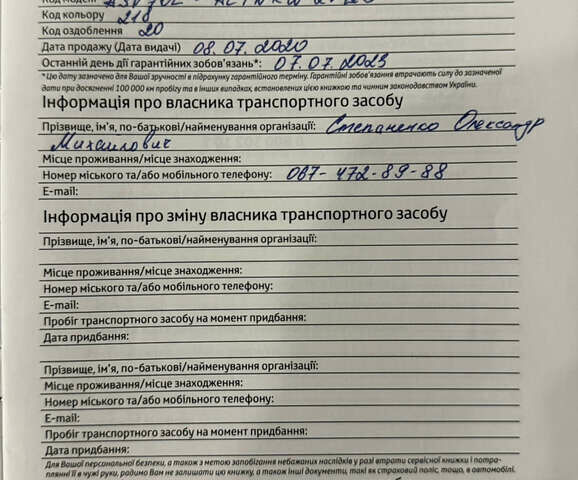 Код кольору 218
Код оздоблення 20
Дата продажу (Дата видачі) 08.07.2020
Останній день дії гарантійних зобов'язань*: 07.07.2023
*Цю дату зазначено для Вашої зручності в підрахунку гарантійного терміну. Гарантійні зобов'язання втрачають силу до зазначеної
дати при досягненні 100 000 км пробігу та в інших випадках, встановлених цією книжкою та чинним законодавством України.
Інформація про власника транспортного засобу
Прізвище, ім'я, по-батькові/найменування організації: Степаненко Олександр
Михайлович
Місце проживання/місце знаходження:
Номер міського та/або мобільного телефону: 067-472-89-88
E-mail:
Інформація про зміну власника транспортного засобу
Прізвище, ім'я, по-батькові/найменування організації:
Місце проживання/місце знаходження:
Номер міського та/або мобільного телефону:
E-mail:
Пробіг транспортного засобу на момент придбання:
Дата придбання:
Прізвище, ім'я, по-батькові/найменування організації:
Місце проживання/місце знаходження:
Номер міського та/або мобільного телефону:
E-mail:
Пробіг транспортного засобу на момент придбання:
Дата придбання:
Для Вашої персональної безпеки, а також з метою запобігання небажаних наслідків у разі втрати сервісної книжки і потра-
плянні її в чужі руки, радимо Вам не залишати цю книжку, а також інші документи, такі як страховий поліс, тощо, в автомобілі.